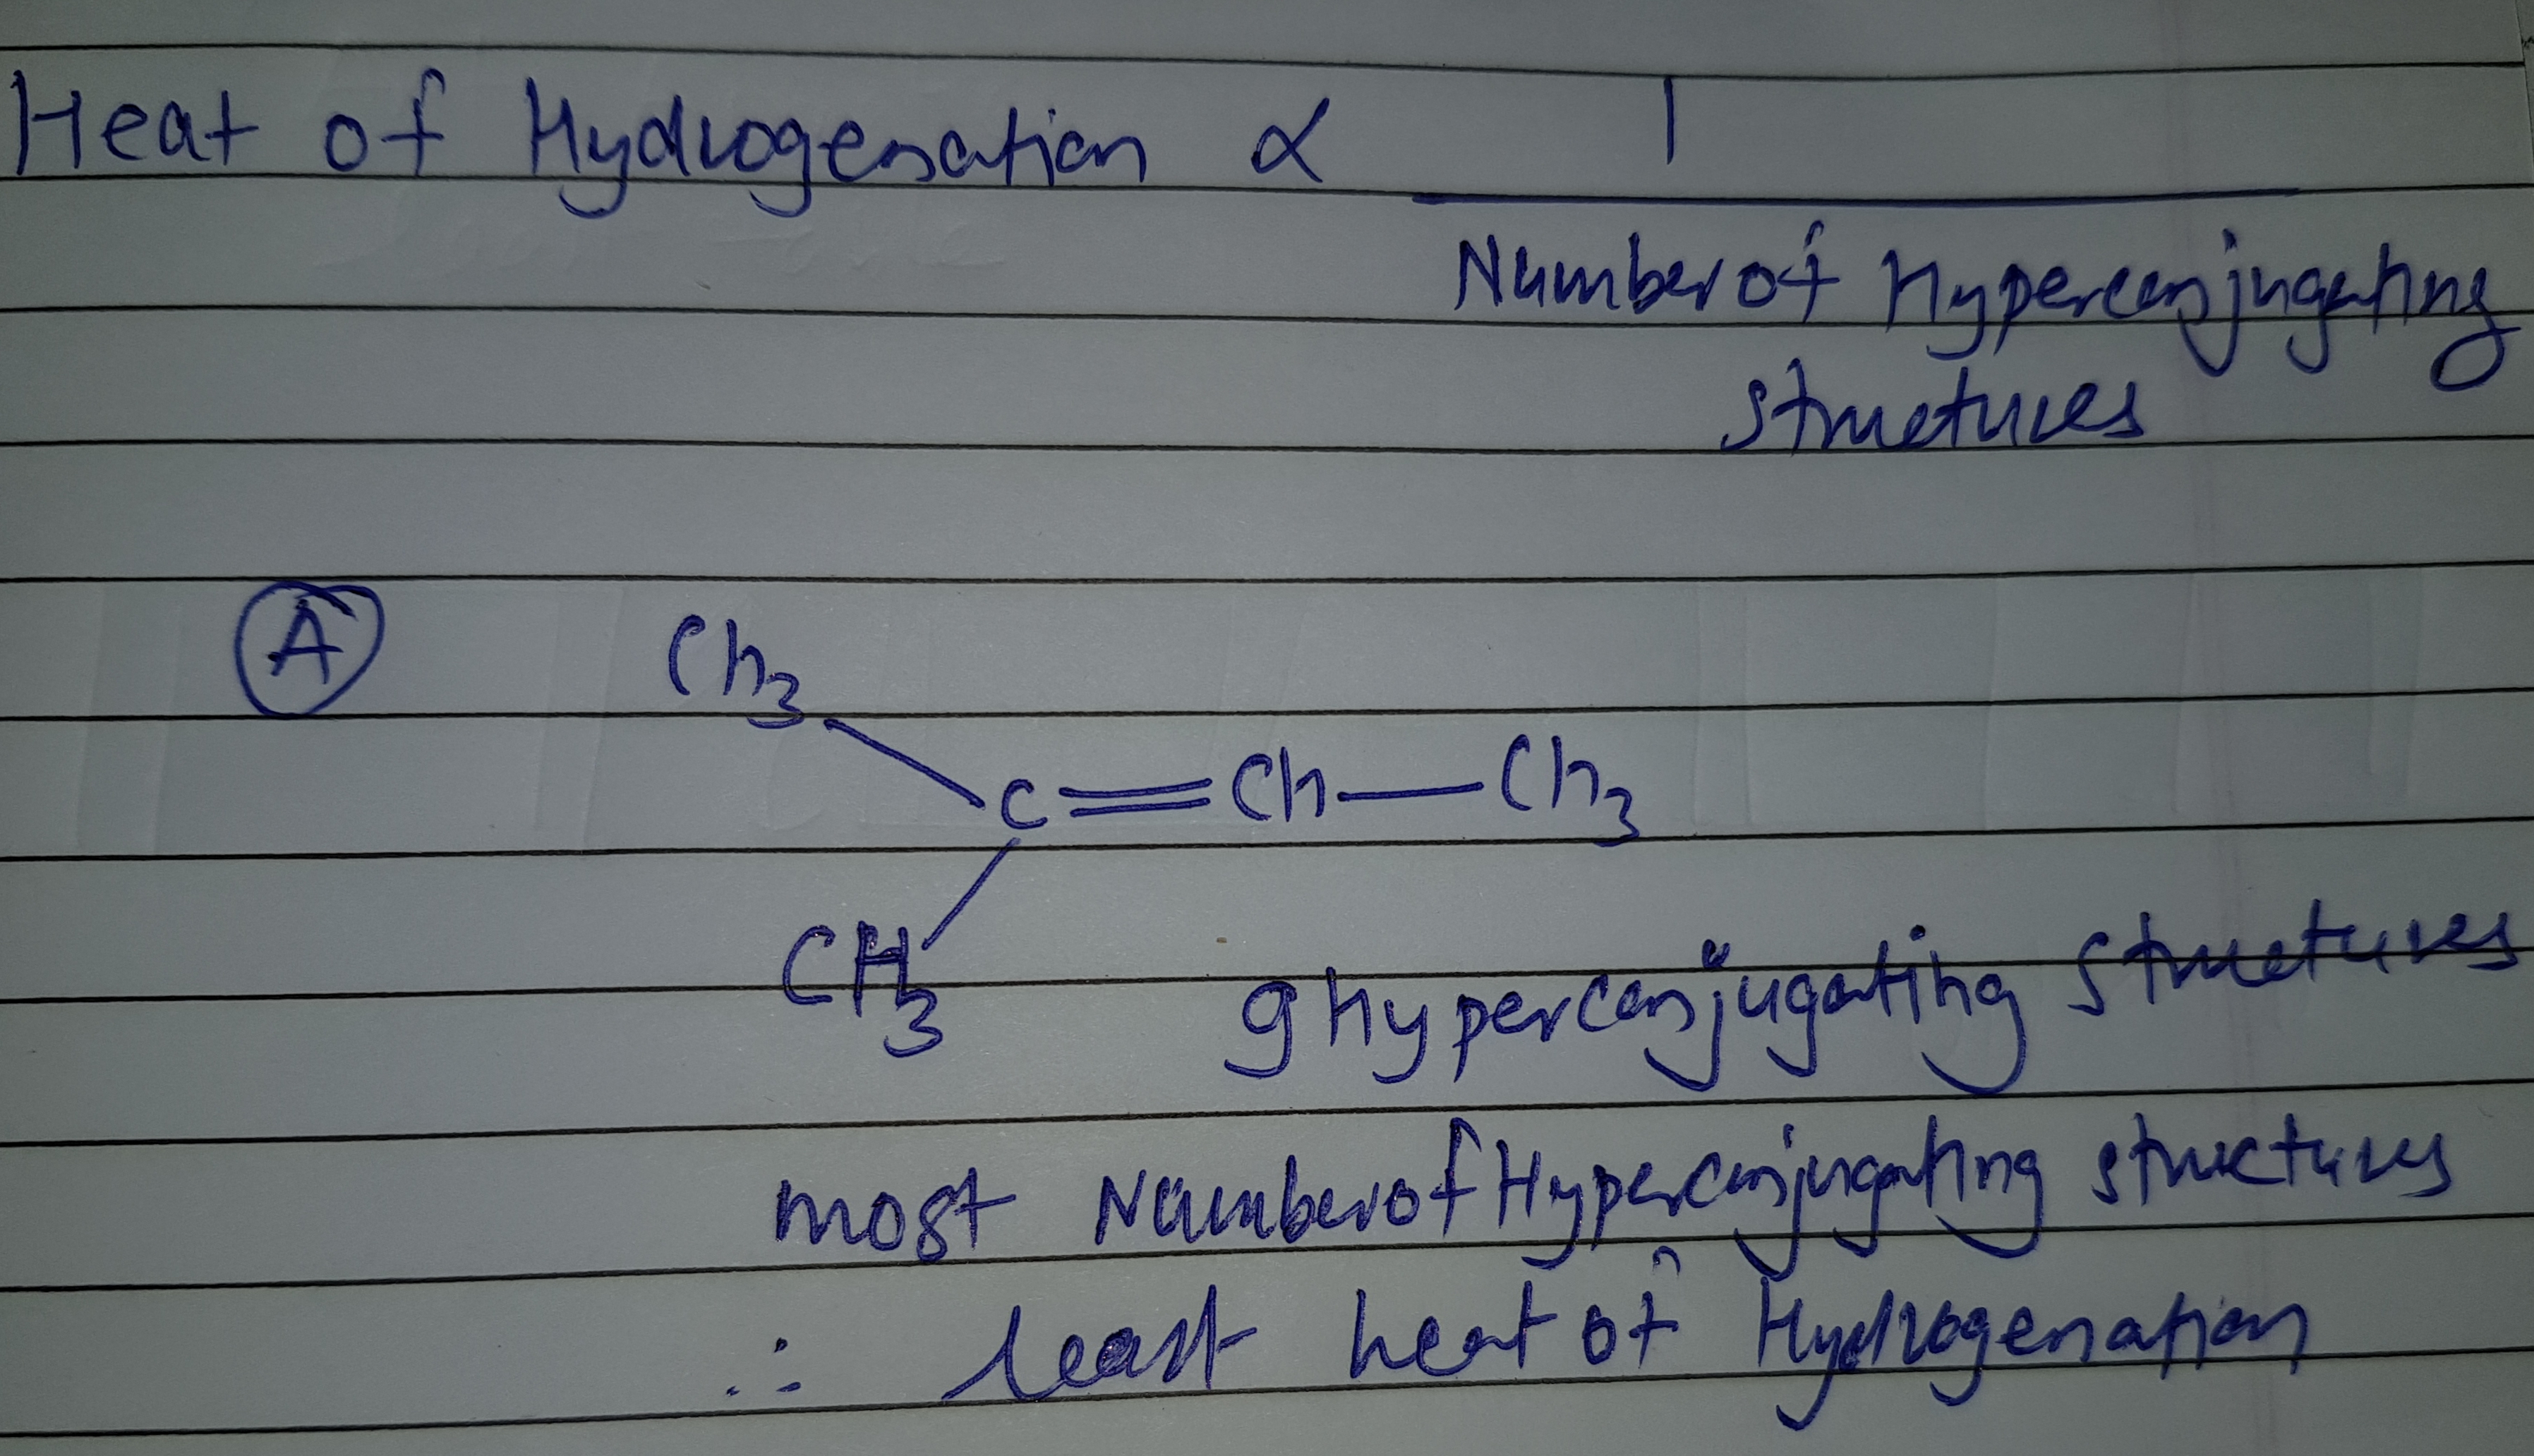 Heat of Hydrogenation ∝ 1
Number of Hyperconjugating
structures
A
Ch3
C=Ch-Ch3
CH3
9 hyperconjugating structures
most Number of Hyperconjugating structures
∴ least heat of Hydrogenation